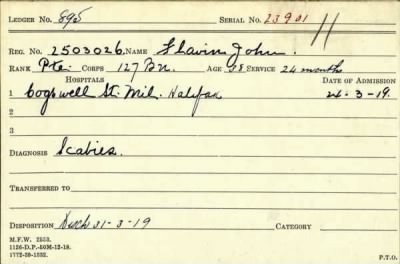 LEDGER No. 895 SERIAL No. 23901 11
REG. No. 2503026 NAME Flavin John.
RANK Pte. CORPS 127 Bn. AGE 38 SERVICE 24 months
HOSPITALS DATE OF ADMISSION
1 Cogswell St. Mil. Halifax 24-3-19.
2
3
DIAGNOSIS Scabies.
TRANSFERRED TO
DISPOSITION Disch 31-3-19 CATEGORY
M.F.W. 2553.
1126-D.P.-50M-12-18.
1772-39-1552. P.T.O.